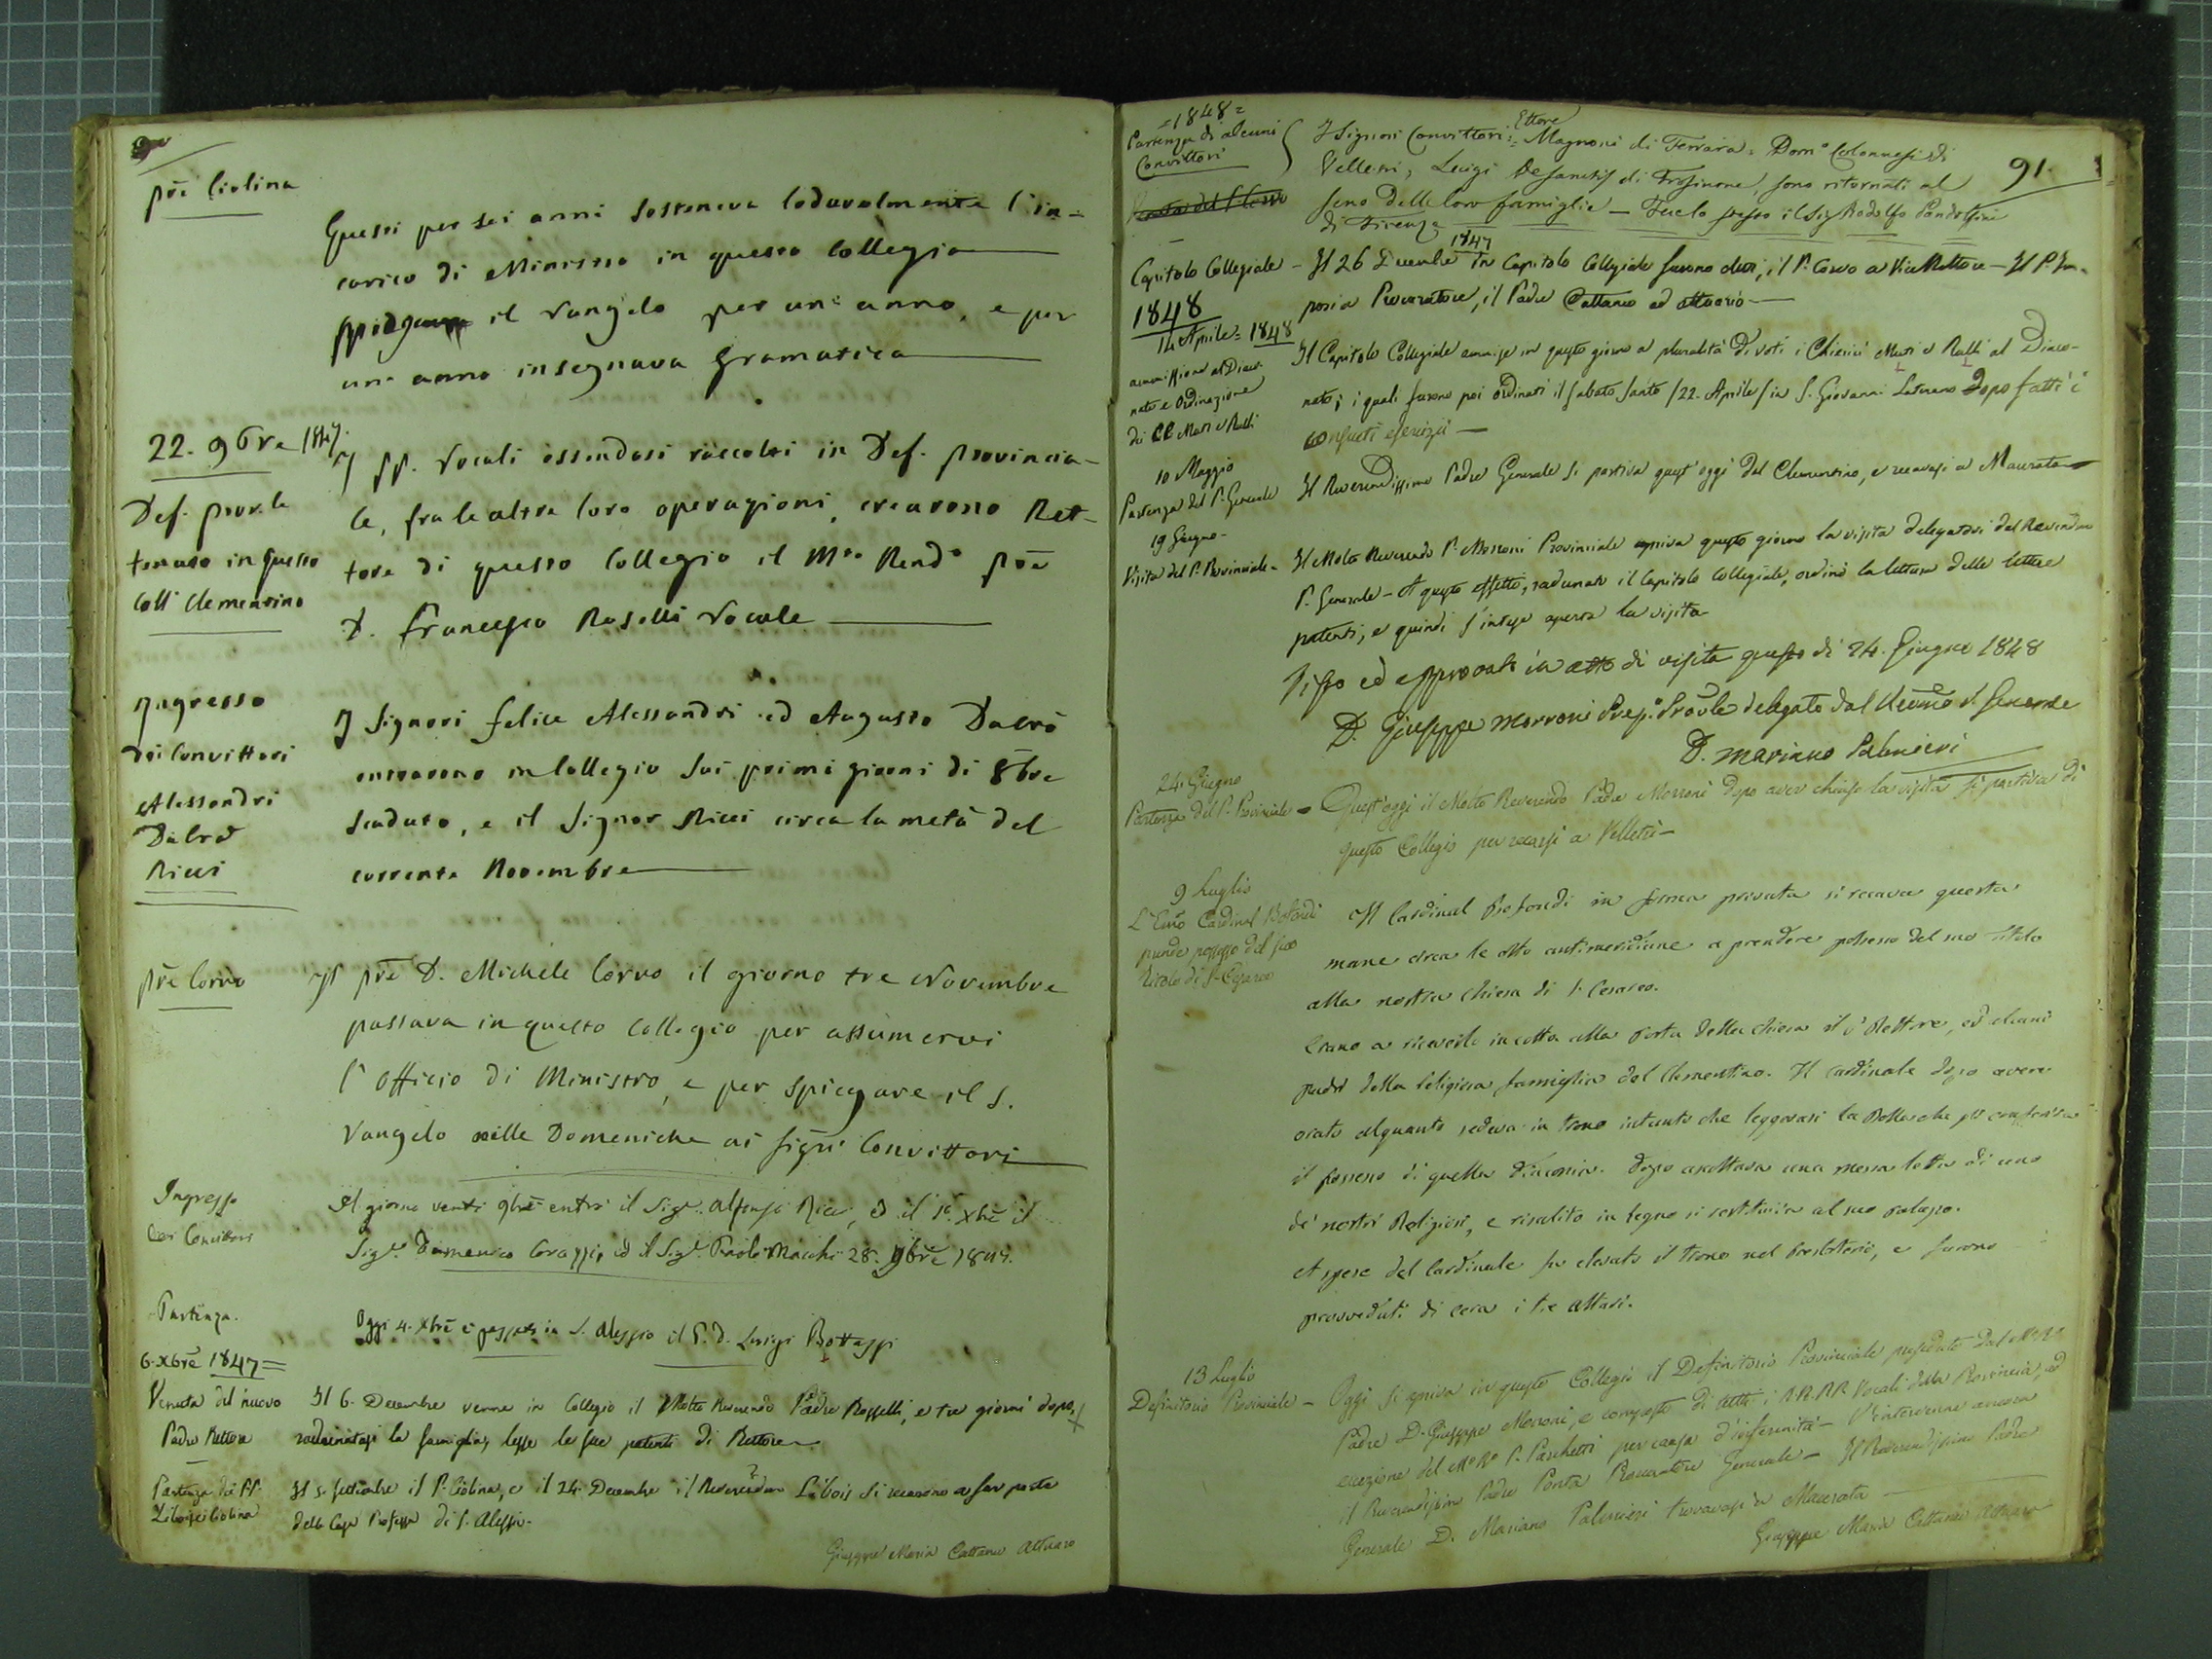 pr̃e Ciolina
Questi per sei anni sosteneva lodavolmente l'in-
carico di Ministro in questo Collegio
il Vangelo per un' anno, e per
un' anno insegnava Gramatica
22. 9bre 1847.
Def. prov.le
tenuto in questo
Coll. Clementino
I PP. Vocali essendosi raccolti in Def. Provincia-
le, fra le altre loro operazioni, crearono Ret-
tore di questo Collegio il M.to Rend.o pr̃e
D. Francesco Roselli Vocale
Ingresso
dei Convittori
Alessandri
Dabrò
Ricci
I Signori Felice Alessandri ed Augusto Dabrò
entrarono in Collegio sui primi giorni di 8bre
scaduto, e il Signor Ricci circa la metà del
corrente Novembre
pr̃e Corvo
Il pr̃e D. Michele Corvo il giorno tre Novembre
passava in questo Collegio per assumervi
l'Officio di Ministro, e per spiegare il S.
Vangelo nelle Domeniche ai Sig̃ri Convittori
Ingresso
dei Convittori
Il giorno venti 9bre entrò il Sig.r Alfonso Ricci, ed il 1.o Xbre il
Sig.r Domenico ed il Sig.r Paolo Macchi 28. 9bre 1847.
Partenza.
Oggi 4. Xbre è passato in S. Alessio il P. D. Luigi Bottassi
6. Xbre 1847=
Venuta del nuovo
Padre Rettore
Il 6. Decembre venne in Collegio il Molto Reverendo Padre Rosselli, e tre giorni dopo,
radunatasi la famiglia, lesse le sue patenti di Rettore
Partenza dei PP.
Libois e Ciolina
Il 5. Settembre il P. Ciolina, e il 24. Decembre il Reverendo Libois si recarono a far parte
della Casa Professa di S. Alessio.
Giuseppe Maria Cattaneo Attuaro
=1848=
Partenza di alcuni
Convittori
91.
I Signori Convittori: Ettore Magnoni di Ferrara = Dom.o Colonnesi di
Velletri, Luigi Desanctis di Frosinone, sono ritornati al
seno delle loro famiglie — Fecelo stesso il Sig. Rodolfo Pandolfini
di Firenze
Capitolo Collegiale -
Il 26 Decembre 1847 in Capitolo Collegiale furono eletti, il P. Corvo a Vice Rettore — Il P. Im-
posi a Procuratore, il Padre Cattaneo ad attuario —
1848
14 Aprile = 1848
ammissione al Diaco-
nato e Ordinazione
dei CC. Muti e Ralli
Il Capitolo Collegiale ammise in questo giorno a pluralità di voti i Chierici Muti e Ralli al Diaco-
nato; i quali furono poi ordinati il Sabato Santo /22. Aprile/ in S. Giovanni Laterano dopo fatti i
consueti esercizii —
10 Maggio
Partenza del P. Generale
Il Reverendissimo Padre Generale si partiva quest'oggi dal Clementino, e recavasi a Macerata
19 Giugno -
Visita del P. Provinciale -
Il Molto Reverendo P. Morroni Provinciale apriva questo giorno la visita delegatovi dal Reverdmo
P. Generale — A questo effetto, radunato il Capitolo Collegiale, ordinò la lettura delle lettere
patenti, e quindi s'intese aperta la visita
Visto ed approvato in atto di visita questo dì 24. Giugno 1848
D. Giuseppe Morroni Prep. Prov̄le delegato dal Revmo P. Generale
D. Mariano Palmieri
24. Giugno
Partenza del P. Provinciale -
Quest'oggi il Molto Reverendo Padre Morroni dopo aver chiuso la visita si partiva di
questo Collegio per recarsi a Velletri —
9 Luglio
L'Em̃o Cardinal Bofondi
prende possesso del suo
titolo di S. Cesareo
Il Cardinal Bofondi in forma privata si recava questa
mane circa le otto antimeridiane a prendere possesso del suo titolo
alla nostra chiesa di S. Cesareo.
Erano a riceverlo in cotta alla porta della chiesa il P. Rettore, ed alcuni
padri della religiosa famiglia del Clementino. Il Cardinale dopo avere
orato alquanto sedeva in trono intanto che leggevasi la Bolla che gli conferiva
il possesso di quella diaconia. Dopo ascoltava una messa letta di uno
de' nostri Religiosi, e risalito in legno si restituiva al suo palazzo.
A spese del Cardinale fu elevato il trono nel Presbiterio, e furono
provveduti di cera i tre altari.
13 Luglio
Definitorio Provinciale -
Oggi si apriva in questo Collegio il Definitorio Provinciale preseduto dal M.to R.do
Padre D. Giuseppe Morroni, e composto di tutti i RR. PP. Vocali della Provincia, ad
eccezione del M.o R.o P. Paschetti per causa d'infermità — V'intervenne ancora
il Reverendissimo Padre Ponta Procuratore Generale — Il Reverendissimo Padre
Generale D. Mariano Palmieri trovavasi a Macerata —
Giuseppe Maria Cattaneo Attuaro